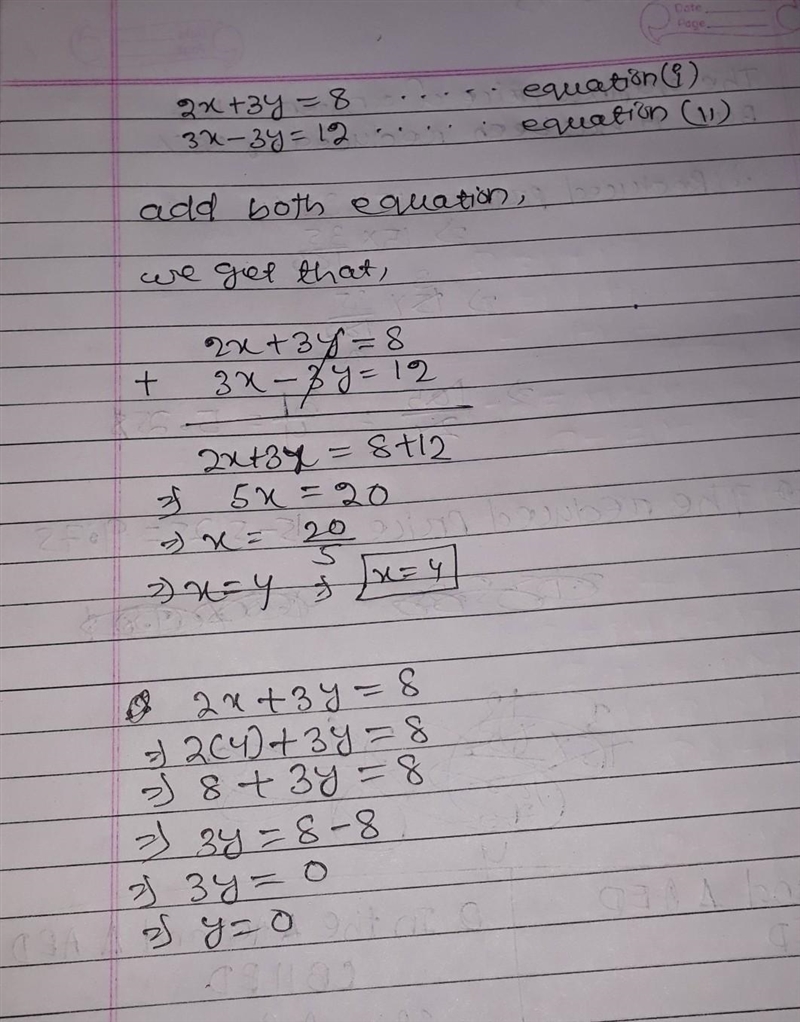 Date
Page
2x+3y=8 ..... equation(i)
3x-3y=12 ..... equation (ii)
add both equation,
we get that,
2x+3y=8
+ 3x-3y=12
2x+3x = 8+12
⇒ 5x = 20
⇒ x = 20/5
⇒ x=4 ⇒ x=4
2x+3y=8
⇒ 2(4)+3y=8
⇒ 8+3y=8
⇒ 3y=8-8
⇒ 3y=0
⇒ y=0